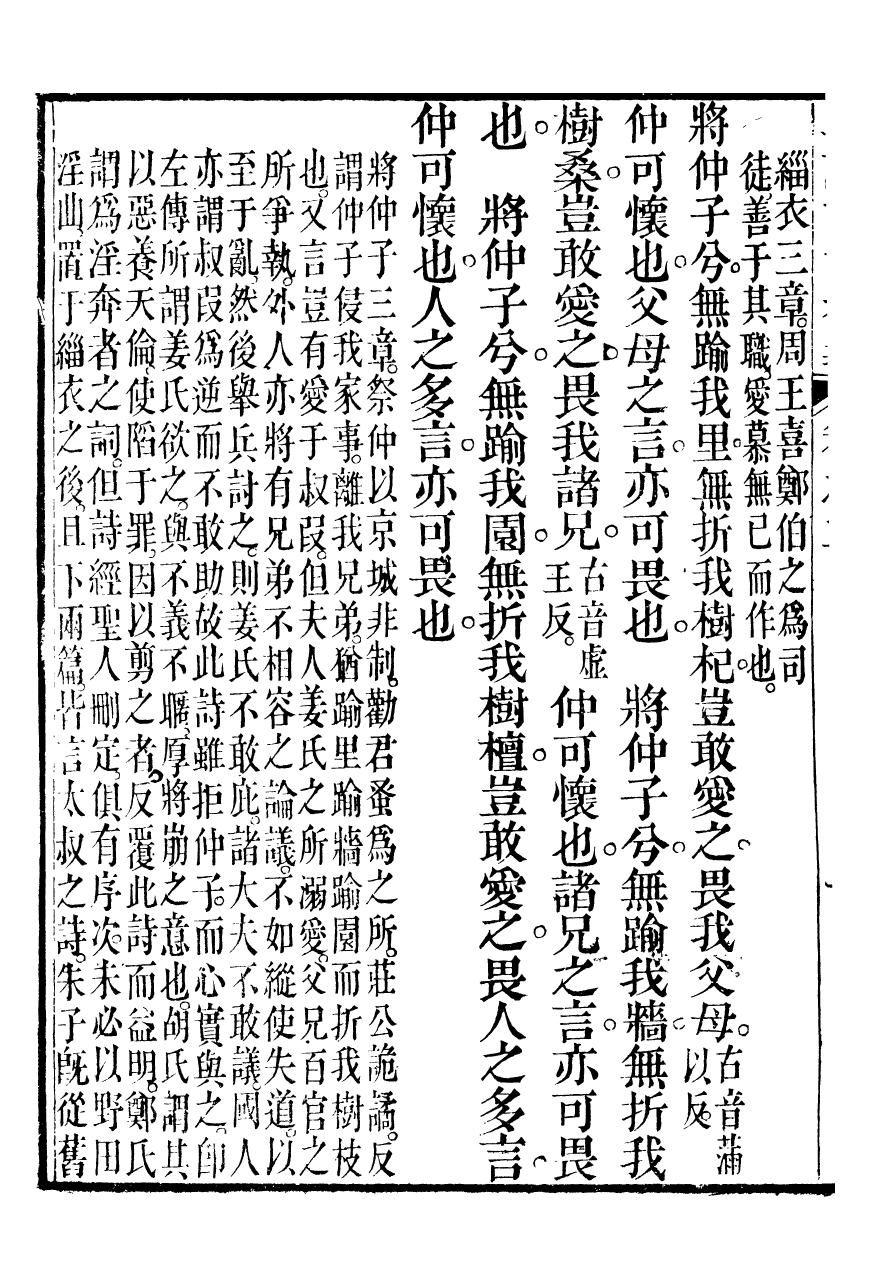 緇衣三章。周王喜鄭伯之爲司
徒善于其職。愛慕無已而作也。
將仲子兮。無踰我里。無折我樹杞。豈敢愛之。畏我父母。古音滿以反。
仲可懷也。父母之言。亦可畏也。　將仲子兮。無踰我牆。無折我
樹桑。豈敢愛之。畏我諸兄。古音虛王反。仲可懷也。諸兄之言。亦可畏
也。　將仲子兮。無踰我園。無折我樹檀。豈敢愛之。畏人之多言。
仲可懷也。人之多言。亦可畏也。
將仲子三章。祭仲以京城非制。勸君蚤爲之所。莊公詭譎。反
謂仲子侵我家事。離我兄弟。猶踰里踰牆踰園而折我樹枝
也。又言豈有愛于叔段。但夫人姜氏之所溺愛。父兄百官之
所爭執。外人亦將有兄弟不相容之論議。不如縱使失道。以
至于亂。然後舉兵討之。則姜氏不敢庇。諸大夫不敢議。國人
亦謂叔段爲逆而不敢助。故此詩雖拒仲子。而心實與之。卽
左傳所謂姜氏欲之。與不義不暱。厚將崩之意也。胡氏謂其
以惡養天倫。使陷于罪。因以剪之者。反覆此詩而益明。鄭氏
謂爲淫奔者之詞。但詩經聖人刪定。俱有序次。未必以野田
淫曲。置于緇衣之後。且下兩篇。皆言太叔之詩。朱子旣從舊